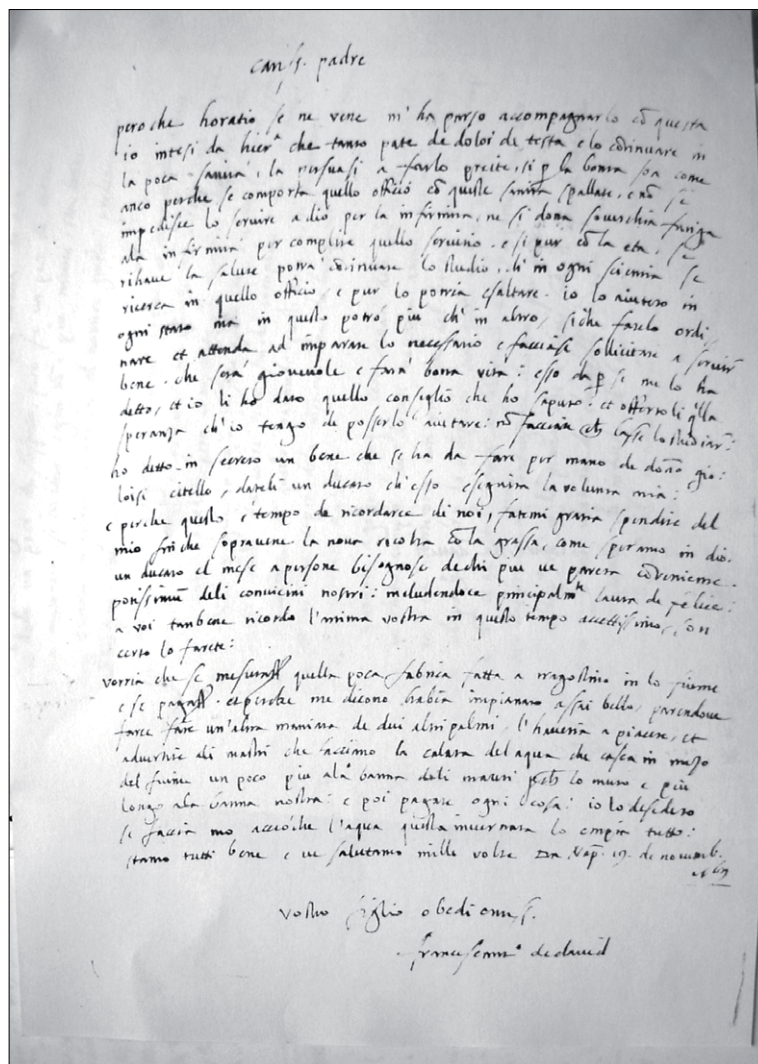 cariss. padre
peroche horatio se ne vene m'ha parso accompagnarlo cō questa
io intesi da hierᵒ che tanto pate de dolor de testa e lo cōtinuare in
la poca sanità, la persuasi a farlo preite, si p la bontà soa come
anco perche se comporta quello officio cō quelle spallate, e nō se
impedisce lo servire a dio per la infirmità, ne si dona soverchia fatiga
ala infirmità per complire quello servitio. e si pur cō la età, se
rihave la salute potrà cōtinuare lo studio. ch' in ogni scientia se
ricerca in quello officio, e pur lo potria esaltare. io lo aiuterò in
ogni stato ma in questo potrò più ch' in altro, si che fatelo ordi
nare et attenda ad imparare lo necessario e facciase sollicitare a servir
bene. che serà giovevole e farà bona vita: esso da p se me lo ha
detto, et io li ho dato quello consiglio che ho saputo. et offertoli q̄lla
speranza ch'io tengo de posserlo aiutare: nō facciate lasse lo studiar:
ho detto in secreto un bene che se ha da fare per mano de donō gio:
loisi citello, dateli un ducato ch'esso esequirà la voluntà mia:
e perche questo è tempo de ricordarce di noi, fatemi gratia spendere del
mio fin che sopravene la nova ricolta cō la grassa, come speramo in dio.
un ducato el mese a persone bisognose de chi piu ve parerà cōveniente.
potissimū deli convicini nostri: includendoce principalmᵗᵉ laura de felice:
a voi tanbene ricordo l'anima vostra in questo tempo accettissimo, son
certo lo farete:
vorria che se mesurasse quella poca fabrica fatta a in lo fiume
e se pagasse. et perche me dicono habia impianato assai bello, parendove
farce fare un'altra maniata de dui altri palmi, l'haveria a piacere, et
advertire ali mastri che facciano la calata del aqua che casca in mezo
del fiume un poco piu ala banna deli mauri lo muro e piu
longo ala banna nostra: e poi pagare ogni cosa: io lo desidero
se faccia mo acciò che l'aqua questa invernata lo empia tutto:
stamo tutti bene e ve salutamo mille volte Da Nap. 19. de novemb.
vostro figlio obedientiss.
francescantᵒ de david